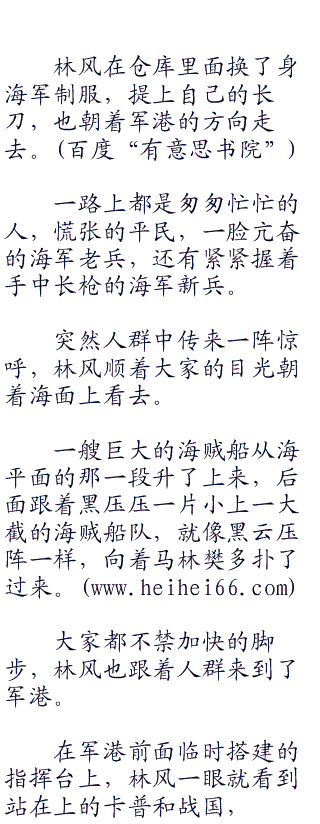 林风在仓库里面换了身
海军制服，提上自己的长
刀，也朝着军港的方向走
去。(百度“有意思书院”)
一路上都是匆匆忙忙的
人，慌张的平民，一脸亢奋
的海军老兵，还有紧紧握着
手中长枪的海军新兵。
突然人群中传来一阵惊
呼，林风顺着大家的目光朝
着海面上看去。
一艘巨大的海贼船从海
平面的那一段升了上来，后
面跟着黑压压一片小上一大
截的海贼船队，就像黑云压
阵一样，向着马林樊多扑了
过来。(www.heihei66.com)
大家都不禁加快的脚
步，林风也跟着人群来到了
军港。
在军港前面临时搭建的
指挥台上，林风一眼就看到
站在上的卡普和战国，